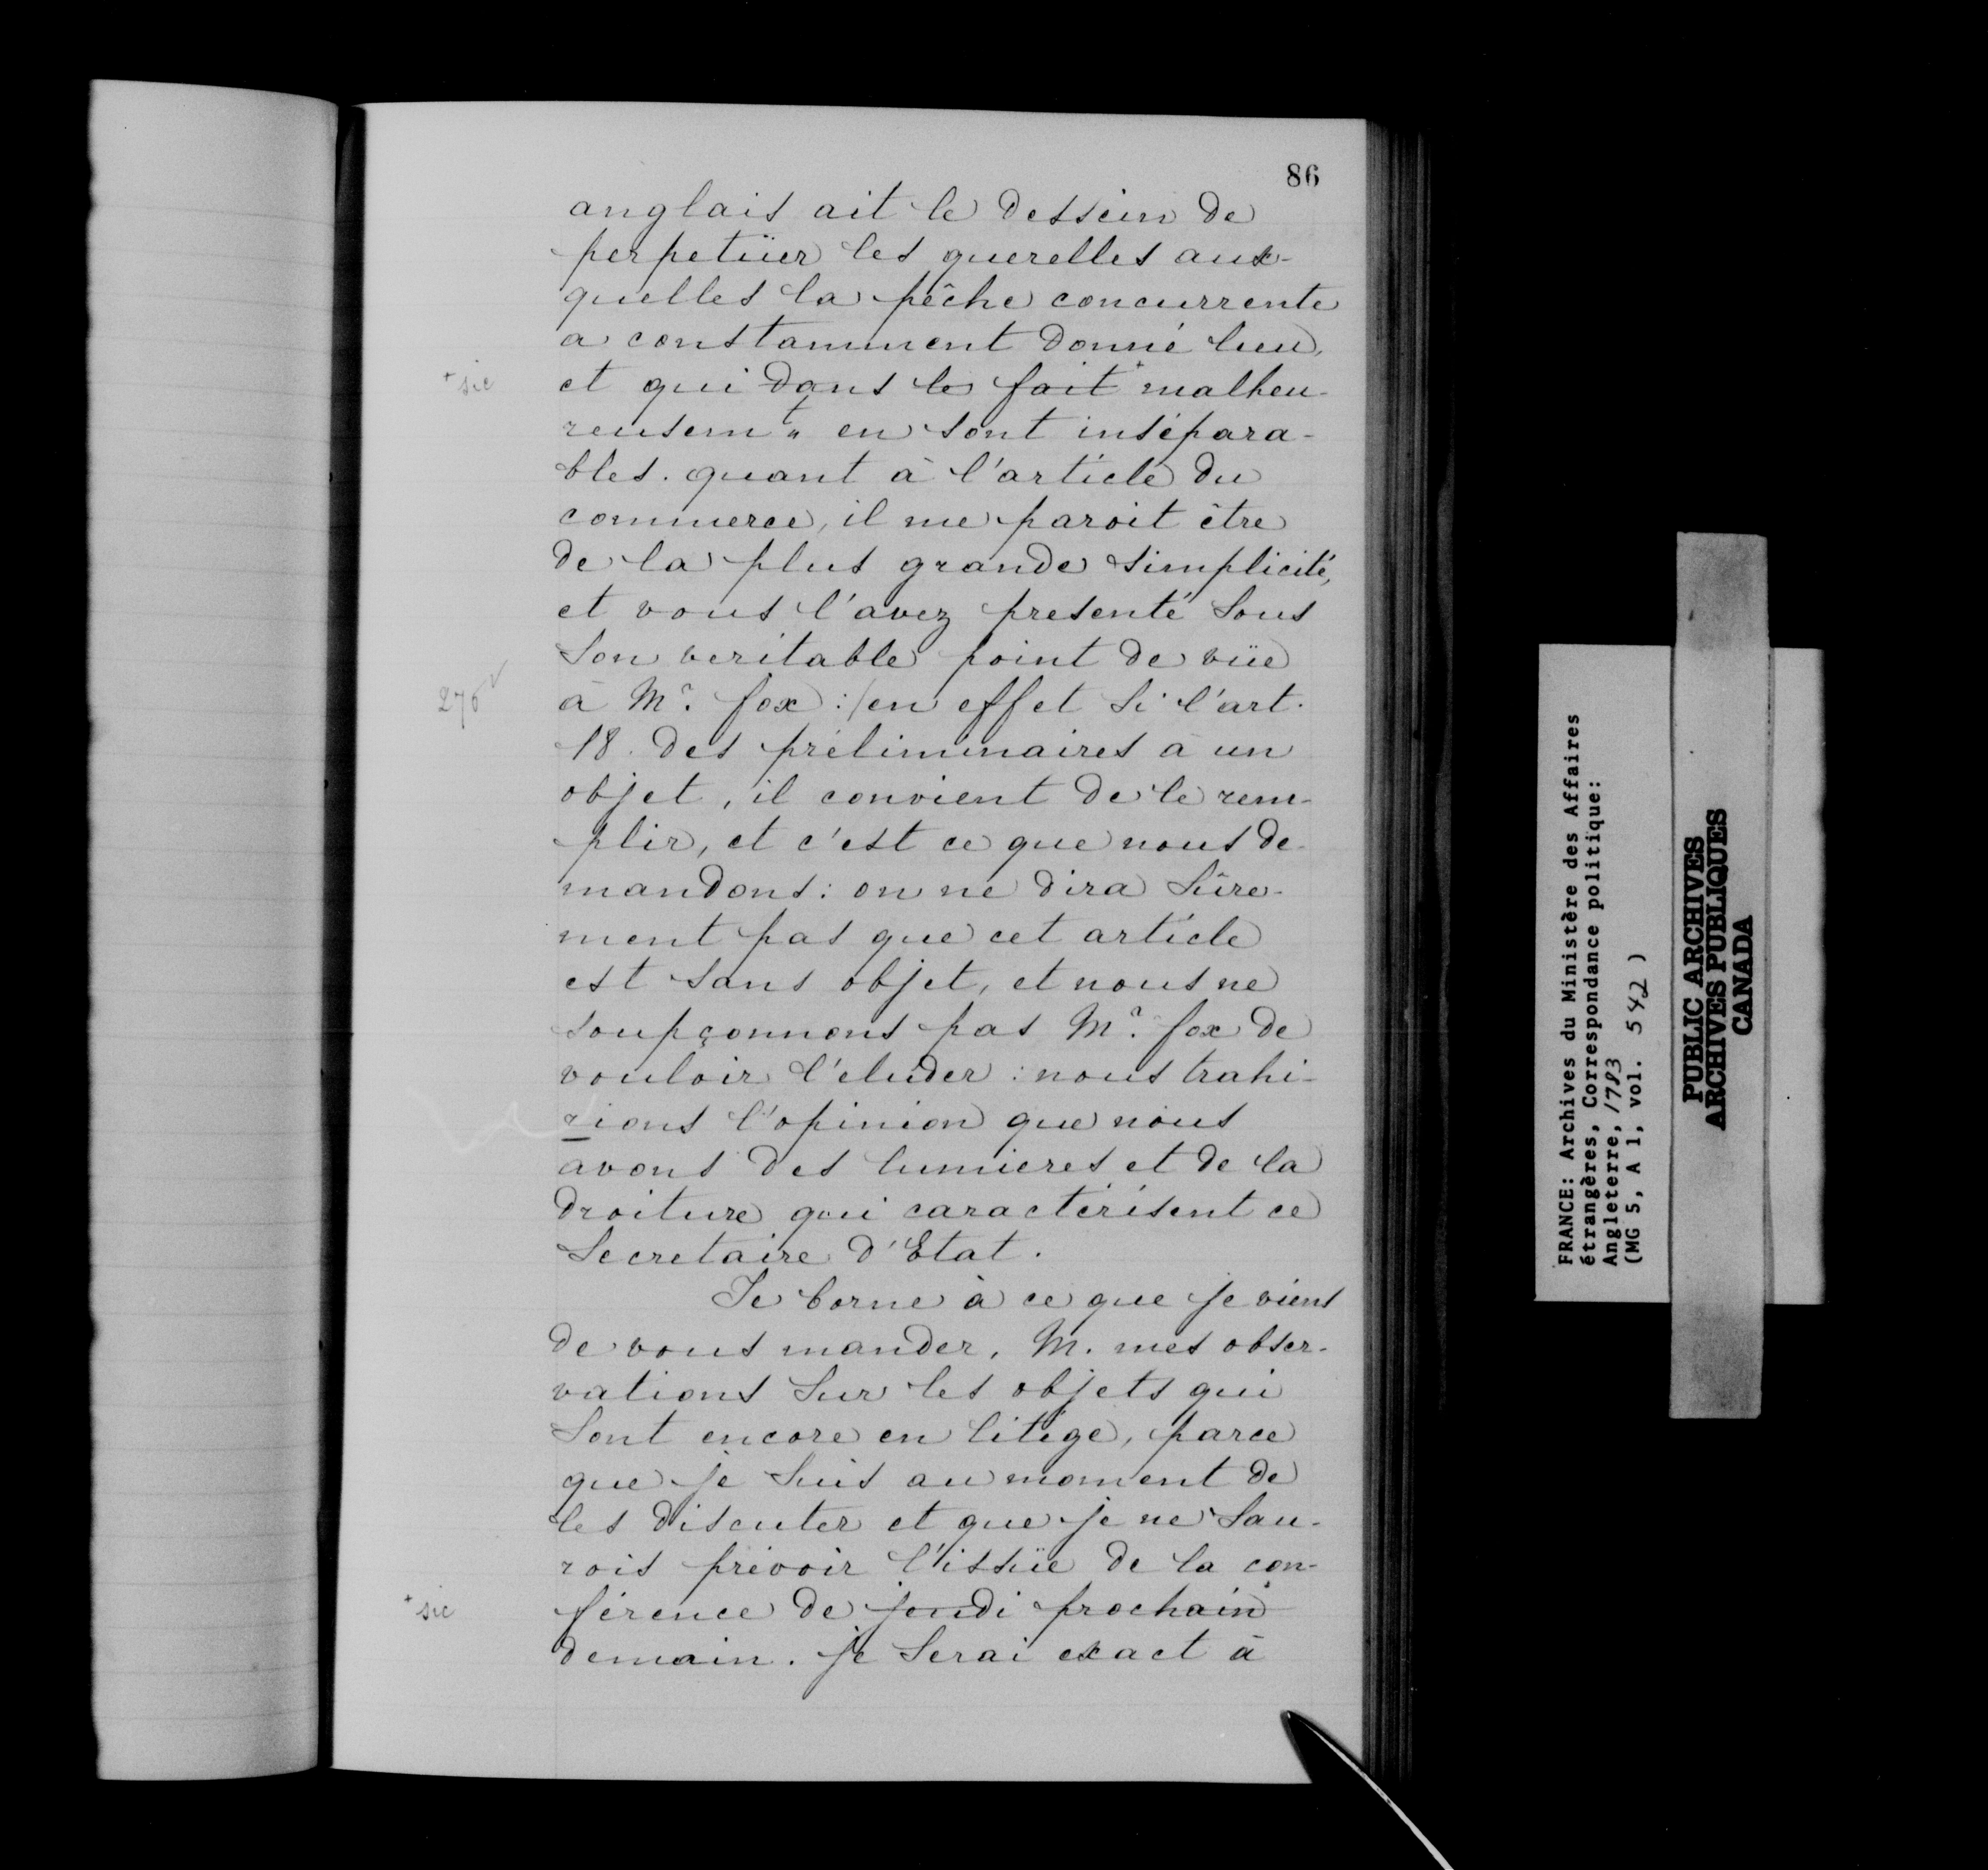 86
anglais ait le dessein de
perpetüer les querelles aux-
quelles la pêche concurrente
a constamment donné lieu,
+ sic
et qui dans le fait + malheu-
reusem.t en sont insépara-
bles. quant à l'article du
commerce, il me paroit être
de la plus grande simplicité,
et vous l'avez presenté sous
son veritable point de vüe
276 v
à Mr. fox :/ en effet si l'art.
18. des préliminaires à un
objet, il convient de le rem-
plir, et c'est ce que nous de-
mandons: on ne dira sûre-
ment pas que cet article
est sans objet, et nous ne
soupçonnons pas Mr. fox de
vouloir l'eluder: nous trahi-
rions l'opinion que nous
avons des lumieres et de la
droiture qui caractérisent ce
Secretaire d'Etat.
Je borne à ce que je viens
de vous mander, M. mes obser-
vations sur les objets qui
sont encore en litige, parce
que je suis au moment de
les discuter et que je ne sau-
rois prévoir l'issüe de la con-
+ sic
férence de jeudi prochain +
demain. je serai exact à
FRANCE: Archives du Ministère des Affaires
étrangères, Correspondance politique:
Angleterre, 1783
(MG 5, A 1, vol. 542 )
PUBLIC ARCHIVES
ARCHIVES PUBLIQUES
CANADA